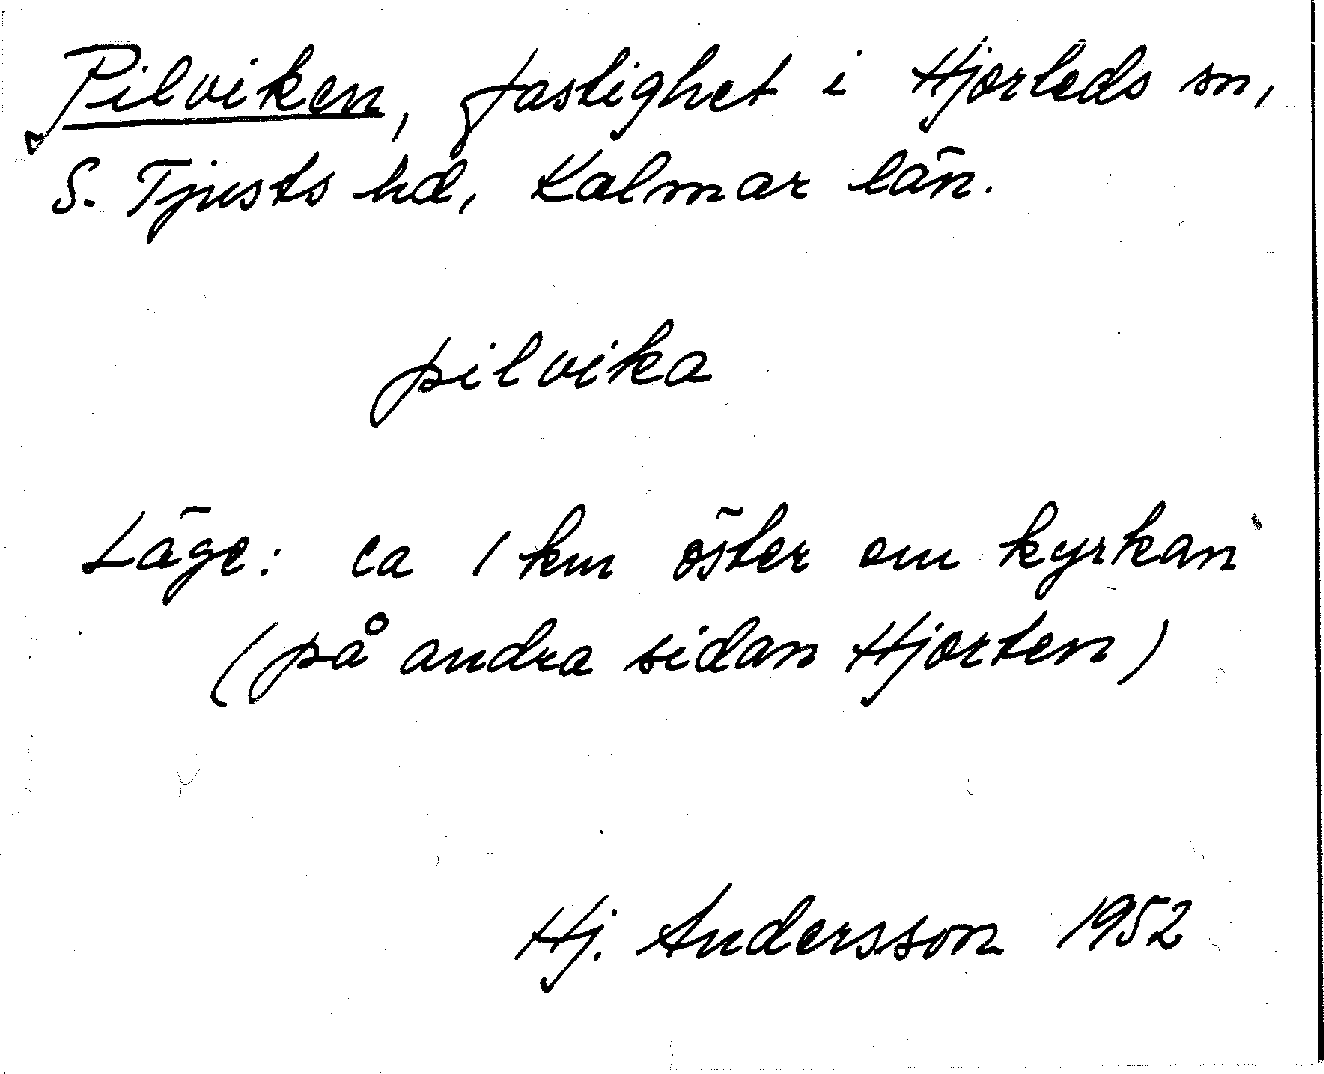 Pilviken, fastighet i Hjorteds sn,
S. Tjusts hd, Kalmar län.
pilvika
Läge: ca 1 km öster om kyrkan
(på andra sidan Hjorten)
Hj. Andersson 1952